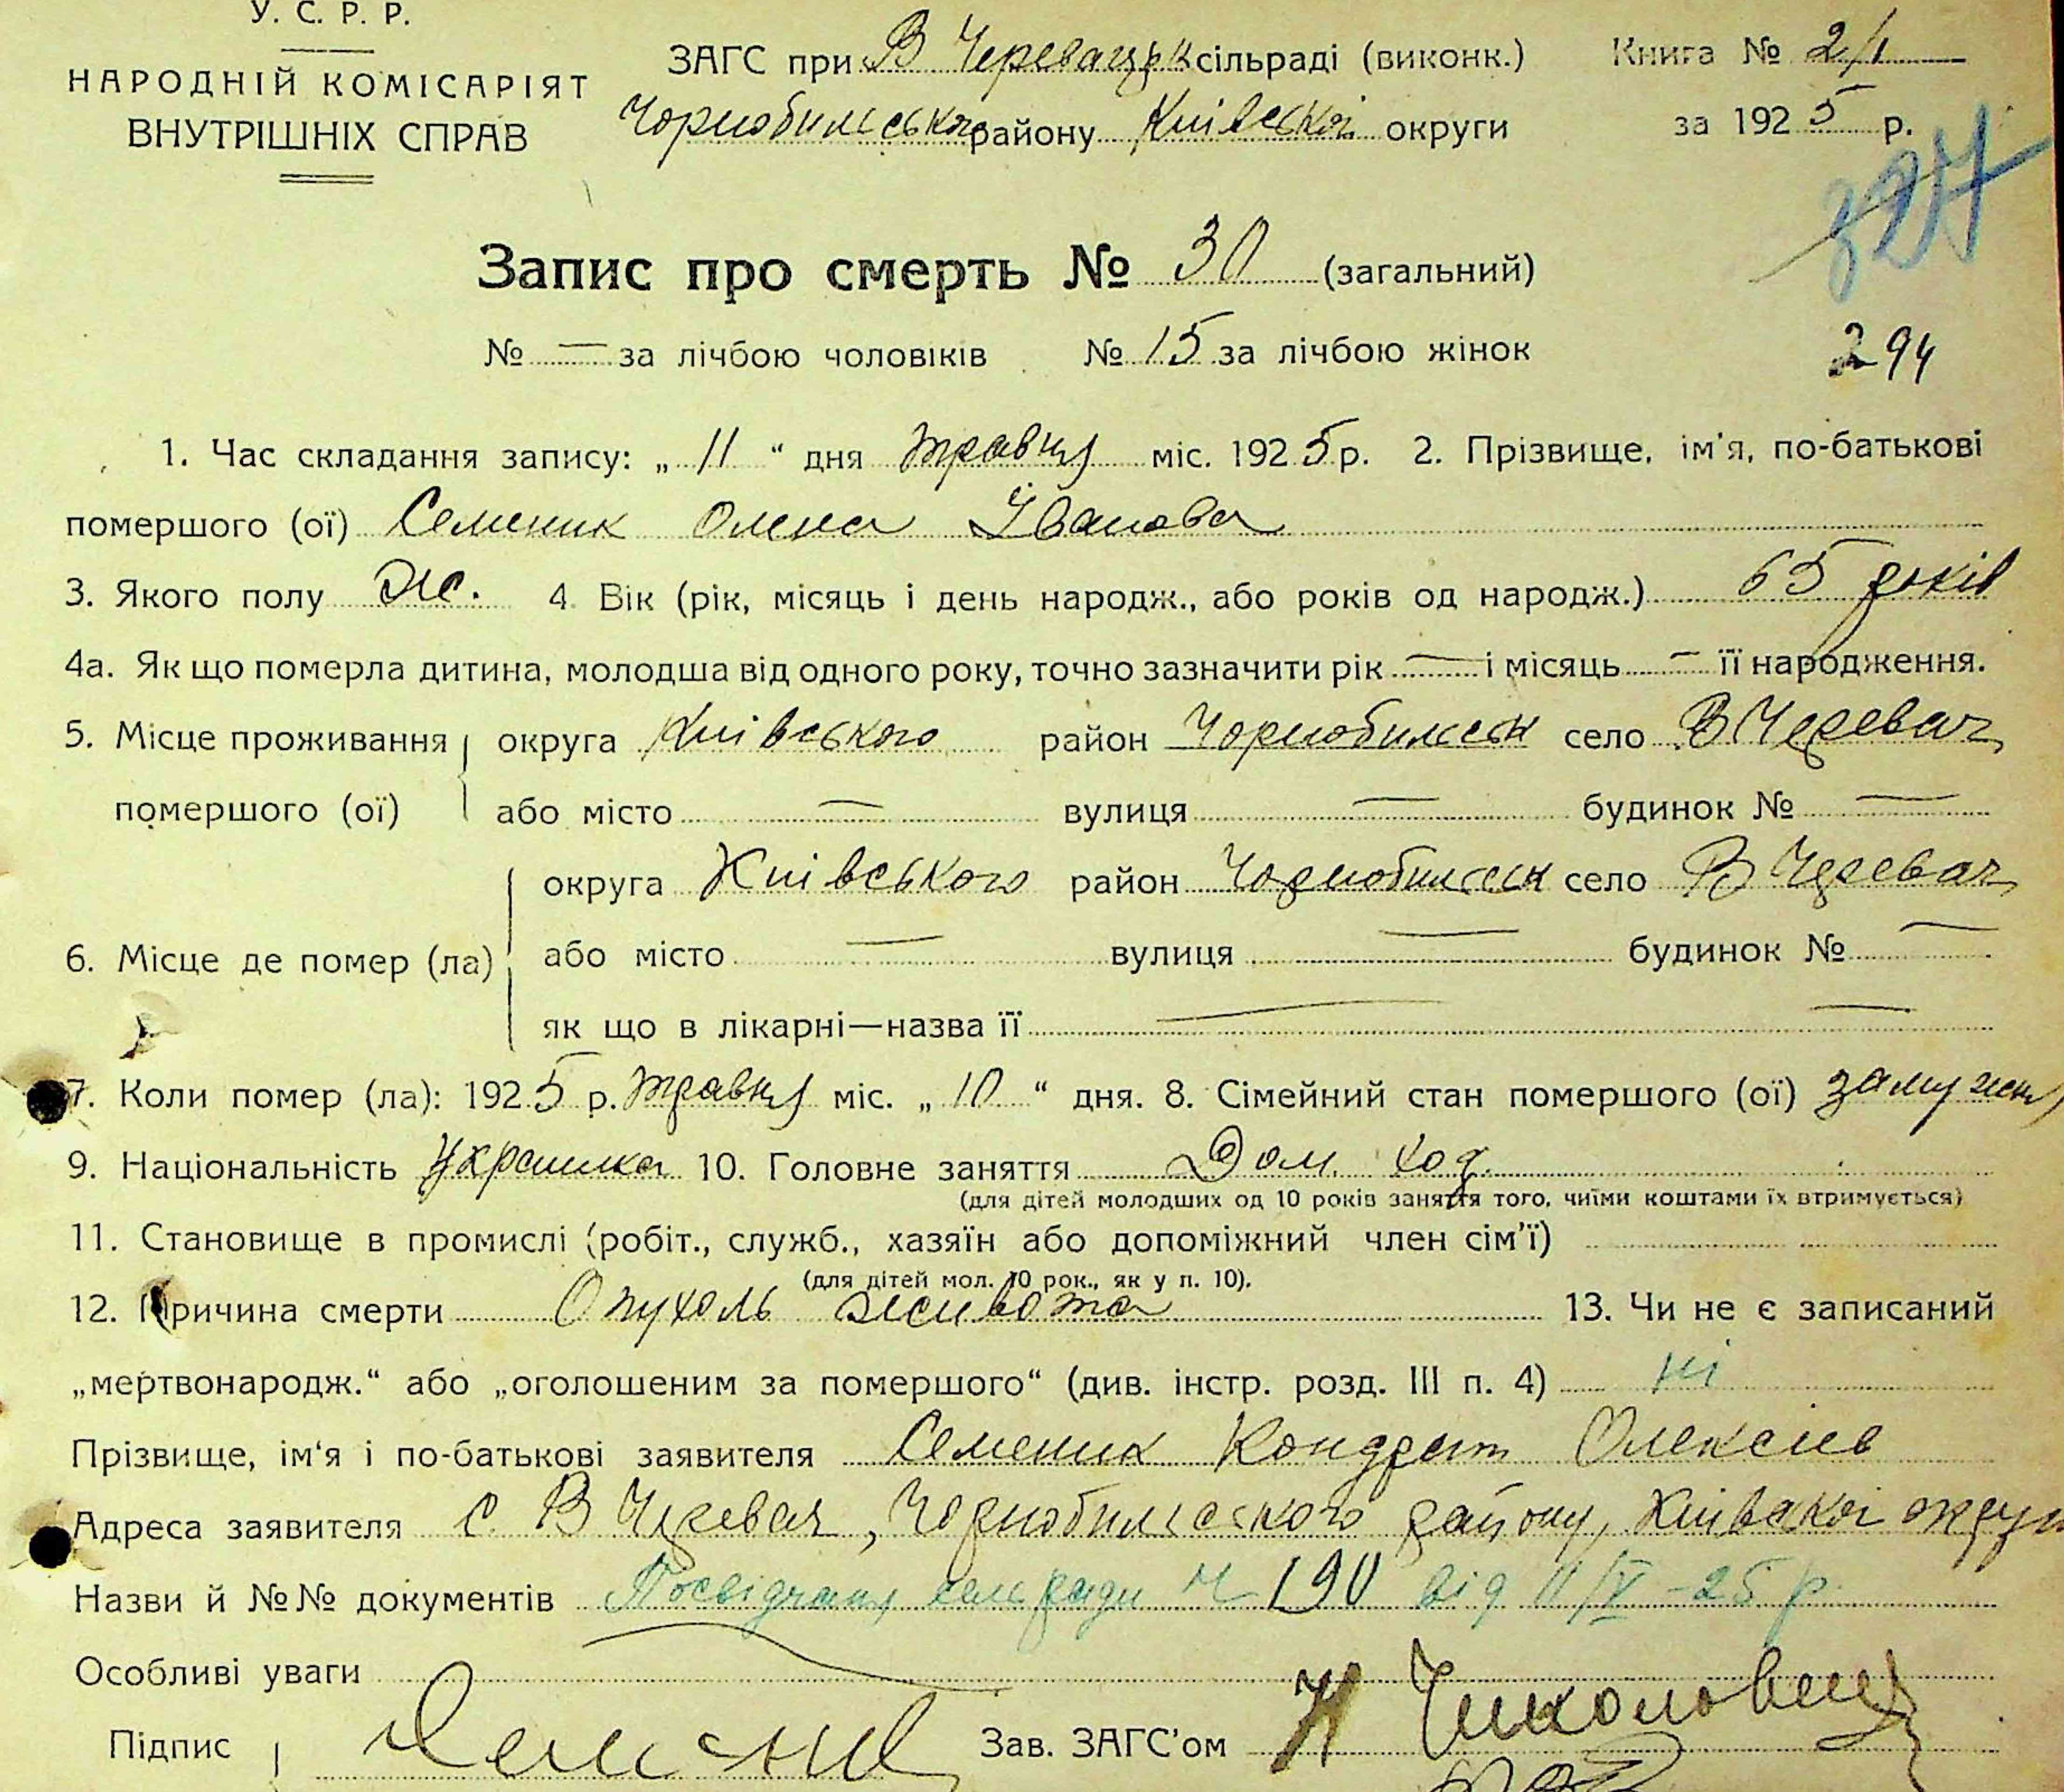 У. С. Р. Р.
НАРОДНІЙ КОМІСАРІЯТ
ВНУТРІШНІХ СПРАВ
ЗАГС при В Черевацьк сільраді (виконк.)
Чорнобильського району Київської округи
Книга № 2/1
за 1925 р.
327
Запис про смерть № 30 (загальний)
№ — за лічбою чоловіків № 15 за лічбою жінок
294
1. Час складання запису: „ 11 “ дня травня міс. 1925 р. 2. Прізвище, ім'я, по-батькові
помершого (ої) Семеник Олена Іванова
3. Якого полу Ж. 4. Вік (рік, місяць і день народж., або років од народж.) 65 років
4а. Як що померла дитина, молодша від одного року, точно зазначити рік — і місяць — її народження.
5. Місце проживання округа Київського район Чорнобильськ село В Черевач
помершого (ої) або місто — вулиця — будинок № —
округа Київського район Чорнобильськ село В Черевач
6. Місце де помер (ла) або місто — вулиця — будинок № —
як що в лікарні—назва її — —
7. Коли помер (ла): 1925 р. травня міс. „ 10 “ дня. 8. Сімейний стан помершого (ої) замужня
9. Національність Українка 10. Головне заняття Дом. хоз.
(для дітей молодших од 10 років заняття того, чиїми коштами їх втримується)
11. Становище в промислі (робіт., служб., хазяїн або допоміжний член сім'ї)
(для дітей мол. 10 рок., як у п. 10).
12. Причина смерти Опухоль живота 13. Чи не є записаний
„мертвонародж.“ або „оголошеним за помершого“ (див. інстр. розд. III п. 4) ні
Прізвище, ім'я і по-батькові заявителя Семеник Кондрат Олексіев
Адреса заявителя с. В Черевач, Чорнобильського району, Київської округи
Назви й №№ документів Посвідчення сельради Ч 190 від 11/V-25 р.
Особливі уваги
Підпис Зав. ЗАГС'ом